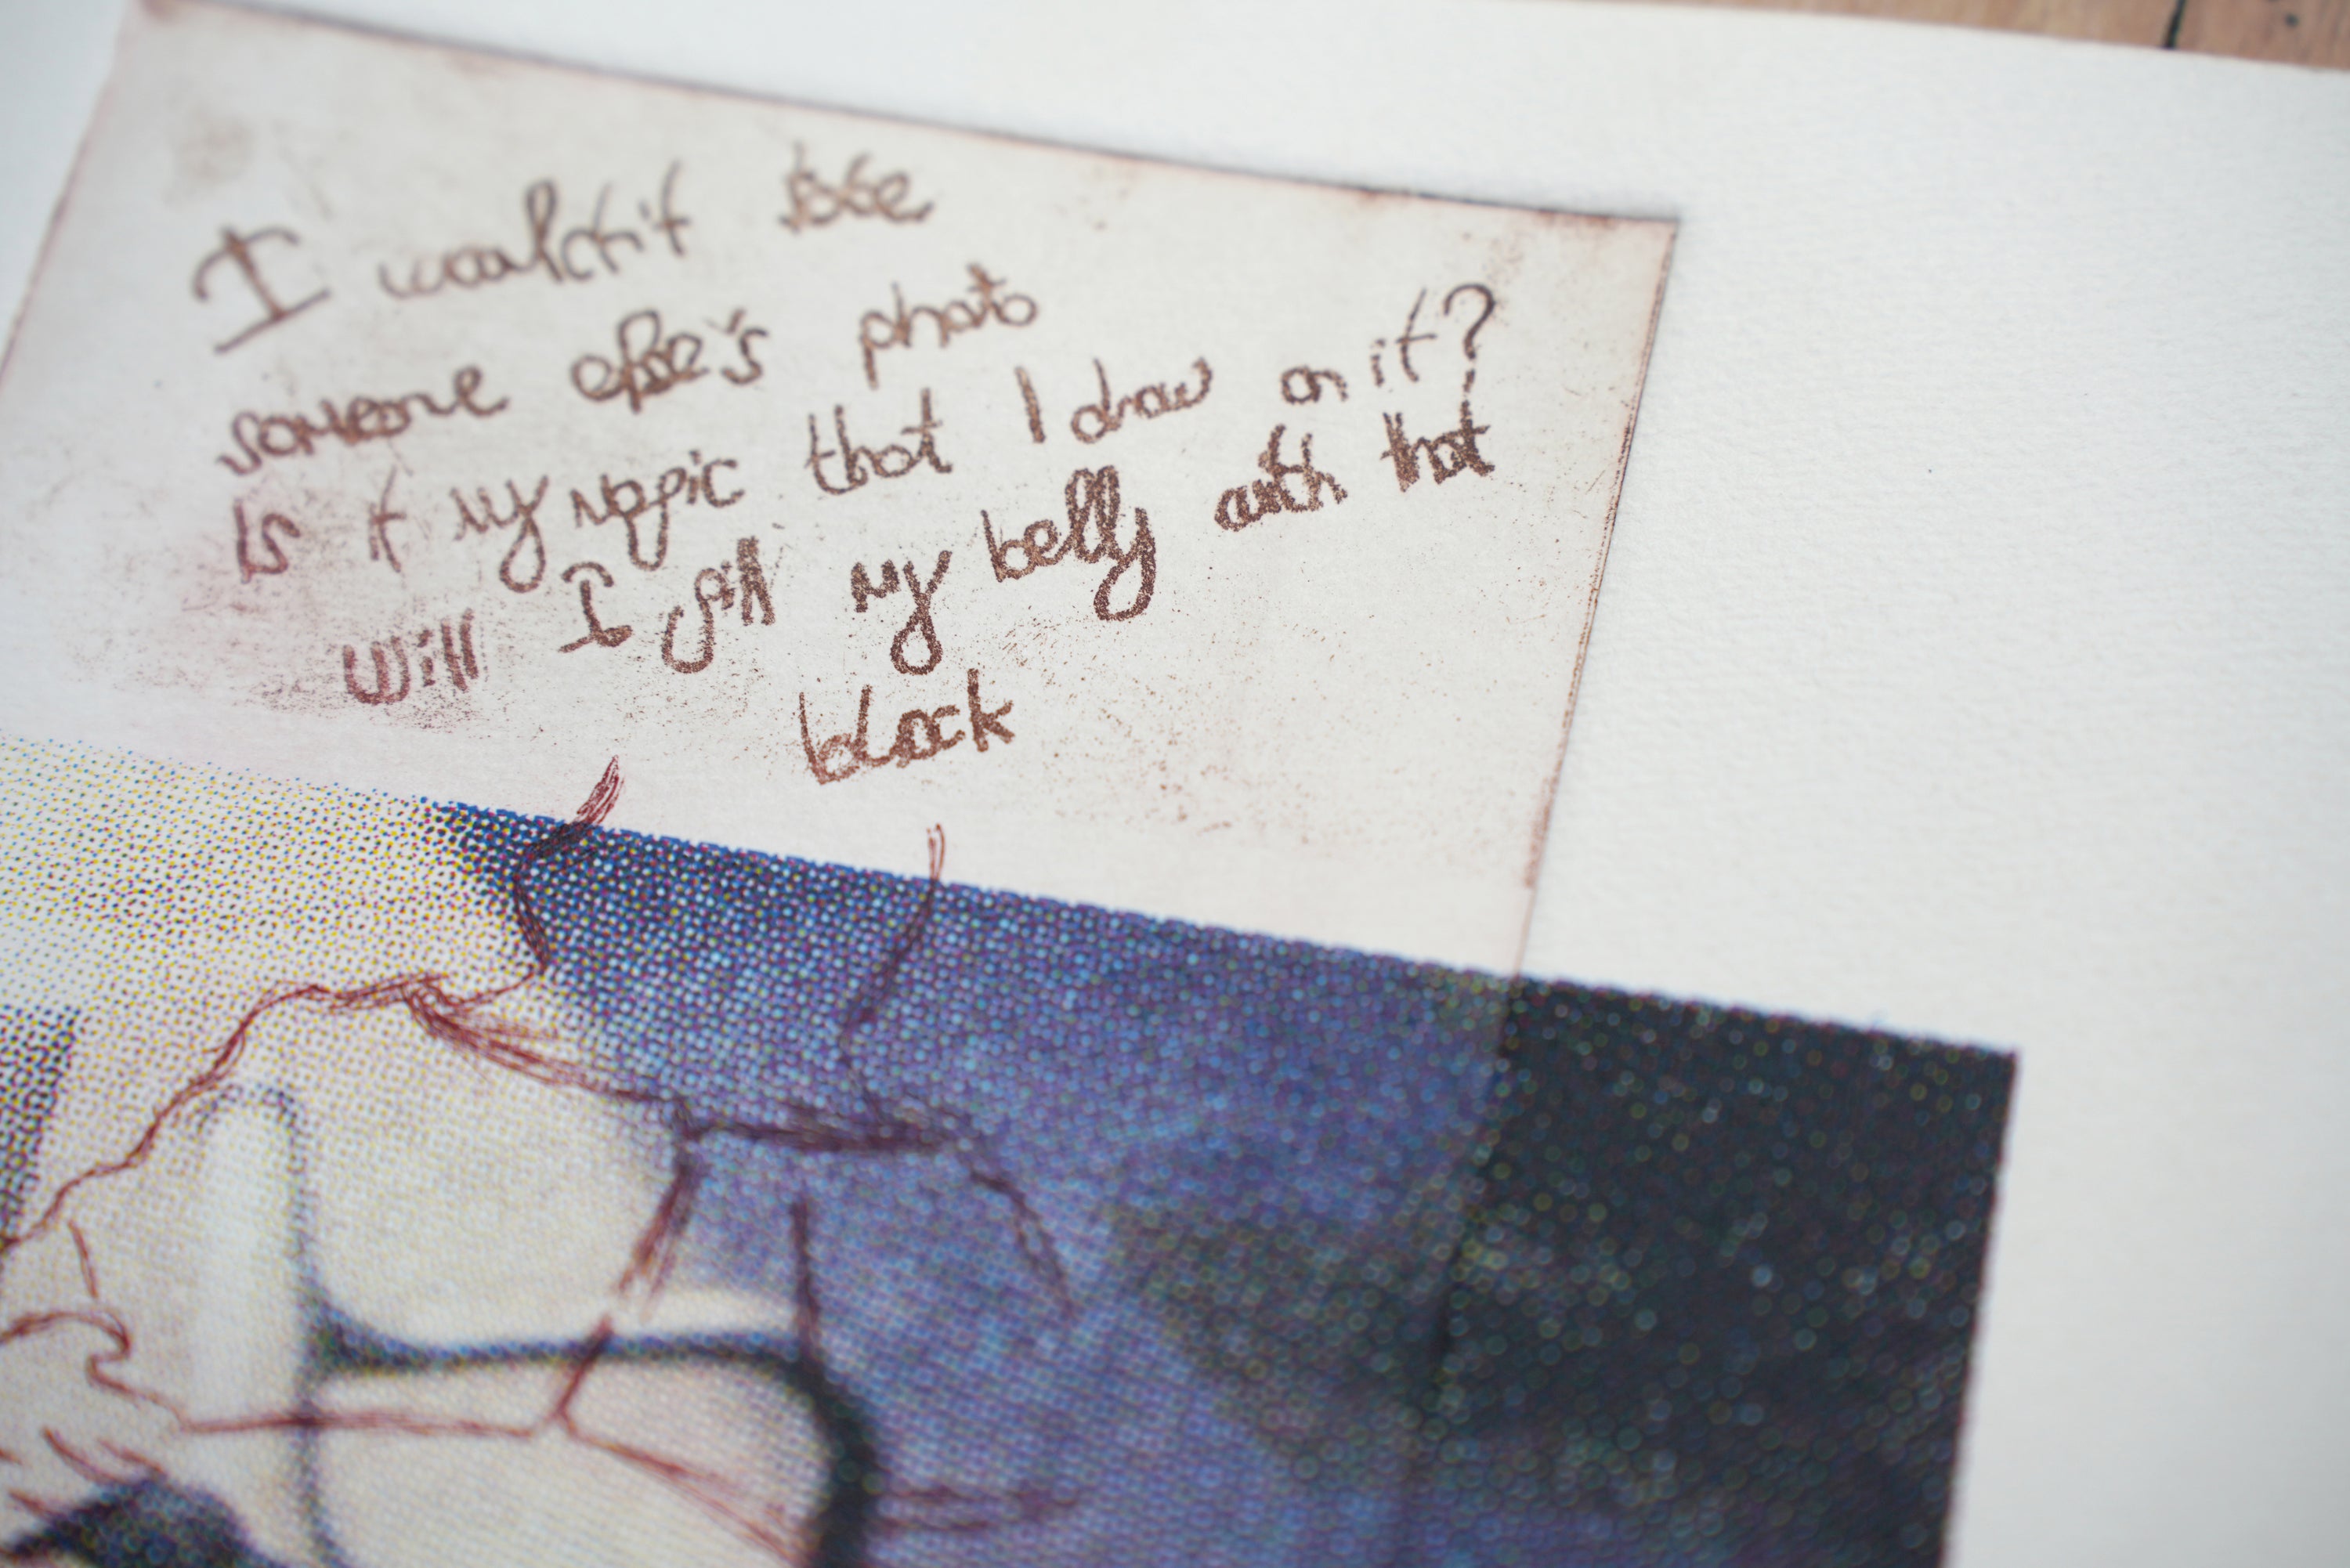 I wouldn't
someone else's photo
Is it my magic that I draw on it?
Will I fill my belly with that
black